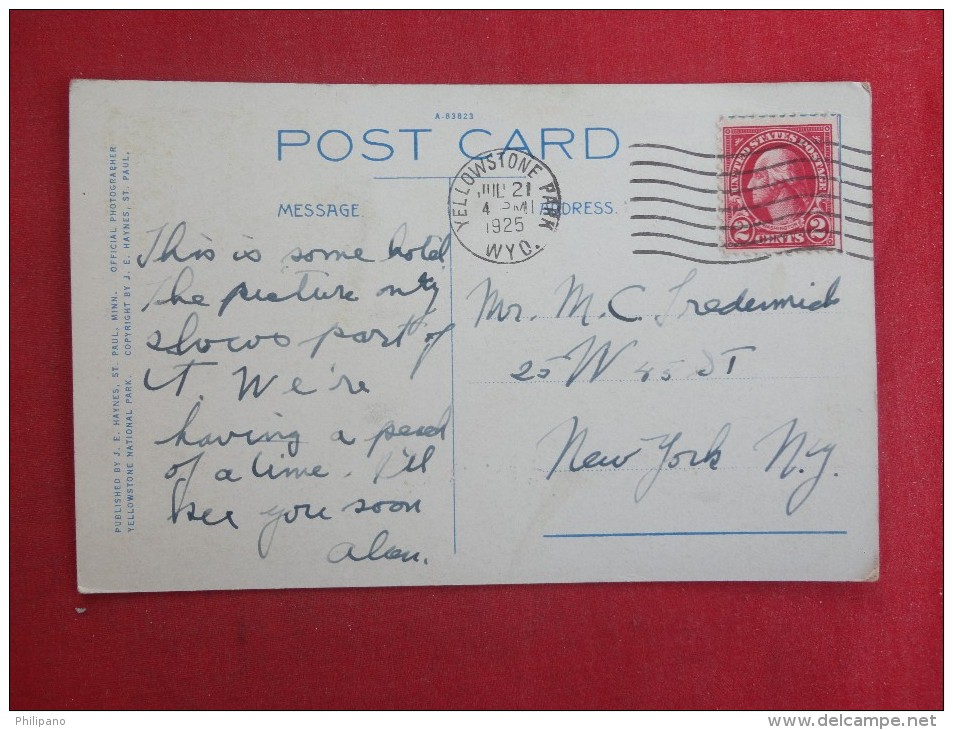 A-83823
POST CARD
MESSAGE
ADDRESS.
YELLOWSTONE PARK
JUL 21
4 PM
1925
WYO.
UNITED STATES POSTAGE
2 CENTS 2
This is some hotel.
The picture only
shows part of
it. We're
having a peach
of a time. I'll
see you soon
Alan.
Mr. M. C.
25 W 45 ST
New York N.Y.
PUBLISHED BY J. E. HAYNES, ST. PAUL, MINN. OFFICIAL PHOTOGRAPHER
YELLOWSTONE NATIONAL PARK. COPYRIGHT BY J. E. HAYNES, ST. PAUL.
Philipano
www.delcampe.net